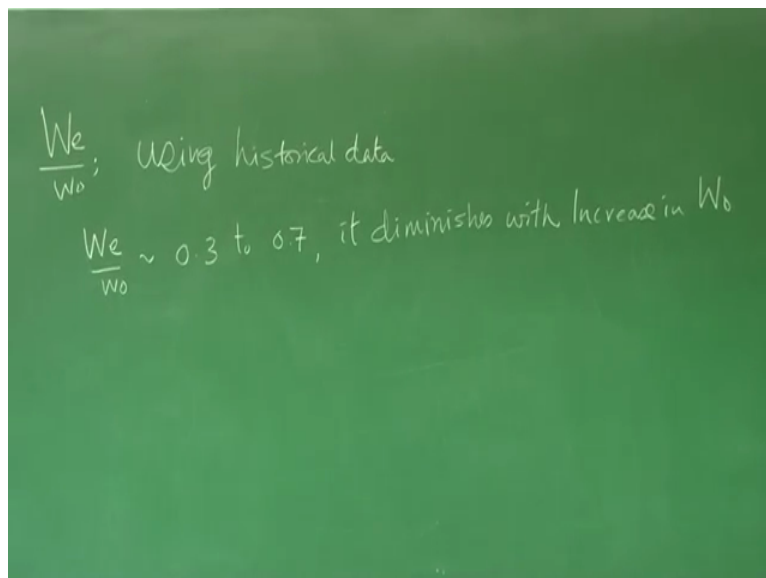 We/W0; Using historical data
We/W0 ~ 0.3 to 0.7, it diminishes with Increase in W0